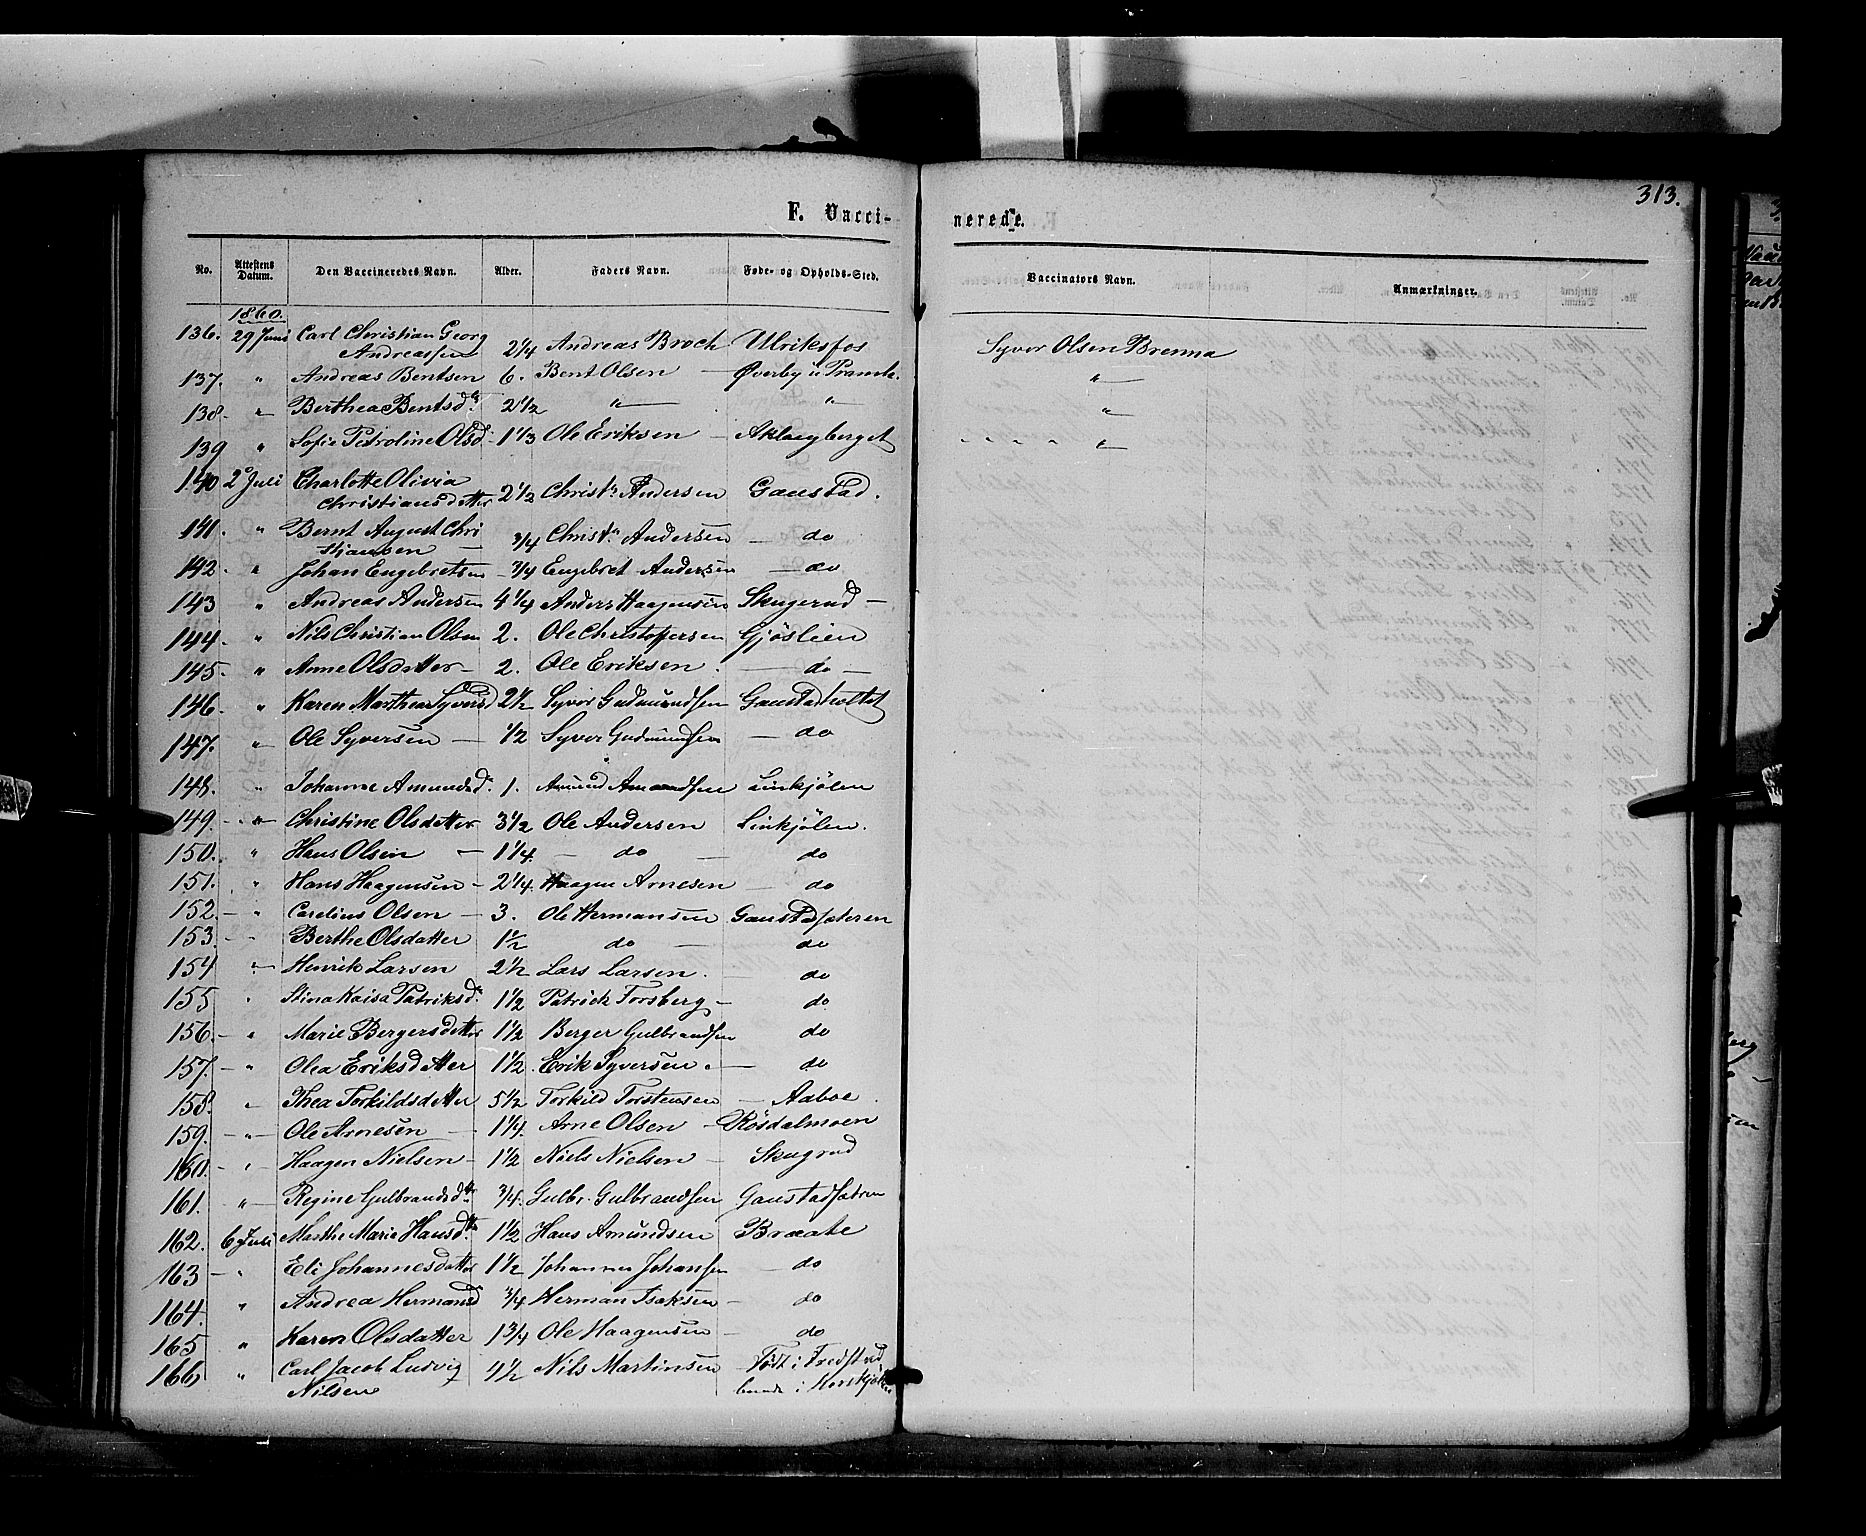 313.
F. Vacci-
nerede.
No. Attestens Datum. Den Vaccineredes Navn. Alder. Faders Navn. Føde- og Opholds-Sted. Vaccinators Navn. Anmærkninger.
1860.
136. 29 Juni Carl Christian Georg
Andreassen 2 1/4 Andreas Broch Ulriksfos Syver Olsen Brenna
137. " Andreas Bentsen 6. Bent Olsen — Øverby i "
138. " Berthea Bentsd. 2 1/2 " " "
139 " Sofie Petroline Olsd. 1 1/3 Ole Eriksen — Aklangberget "
140 2 Juli Charlotte Olivia
Christiansdatter 2 1/2 Christ. Andersen Gaustad.
141. " Bernt August Chri
stiansen — 3/4 Christn Andersen — do
142. " Johan Engebretsen 3/4 Engebret Andersen — do
143 " Andreas Andersen 4 1/4 Anders Haagensen Skugerud —
144. " Nils Christian Olsen 2. Ole Christophersen Gjöslien
145. " Anne Olsdatter — 2. Ole Eriksen — do —
146. " Karen Marthea Syversd 2 1/2 Syver Gudmundsen Gaustadholtet
147. " Ole Syversen — 1/2 Syver Gudmundsen — do
148. " Johanne Amundsd. 1. Amund Amundsen Linkjölen
149. " Christine Olsdatter 3 1/2 Ole Andersen Linkjölen.
150. " Hans Olsen — 1 1/4. — do — do
151. " Hans Haagensen — 2 1/4. Haagen Arnesen — do
152. — " Carelius Olsen — 3. Ole Hermansen Gaustadsæteren
153. — " Berthe Olsdatter 1 1/2 do — do
154 " Henrik Larsen 2 1/2 Lars Larsen. — do
155 " Stina Kaisa Patriksd. 1 1/2 Patrick Forsberg — do
156. — " Marie Bergersdatter 1 1/2 Berger Gulbrandsen do
157. — " Olea Eriksdatter 1 1/2 Erik Syversen. — do
158. " Thea Torkildsdatter 5 1/2 Torkild Torstensen — Aaboe.
159. — " Ole Arnesen — 1 1/4. Arne Olsen — Rösdalmoen
160. — " Haagen Nielsen — 1 1/2 Niels Nielsen — Skugrud
161. " Regine Gulbrandsd. 3/4. Gulbr. Gulbrandsen Gaustadsætren
162. 6 Juli Marthe Marie Hansd. 1 1/2 Hans Amundsen Braate
163 — " Eli Johannesdatter 1 1/2 Johannes Johansen — do
164. " Andrea Hermansd 3/4 Herman Isaksen — do
165 " Karen Olsdatter 1 3/4 Ole Haagensen — do
166 " Carl Jacob Ludvig 4 1/2 Nils Martinsen Født i Fredstad
Nilsen boende i